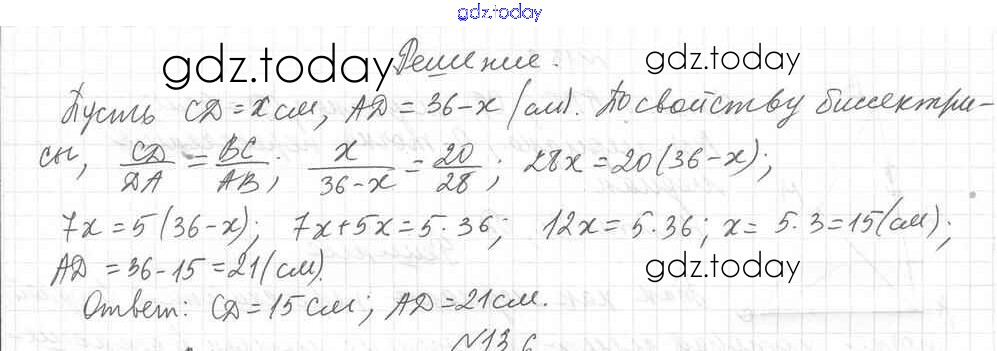 gdz.today
Решение.
gdz.today gdz.today
Пусть CD = x см, AD = 36 - x (см). По свойству биссектри-
сы, CD/DA = BC/AB; x/36-x = 20/28; 28x = 20(36-x);
7x = 5(36-x); 7x+5x = 5·36; 12x = 5·36; x = 5·3 = 15(см);
AD = 36-15 = 21(см).
gdz.today
Ответ: CD = 15 см; AD = 21 см.
№13.6